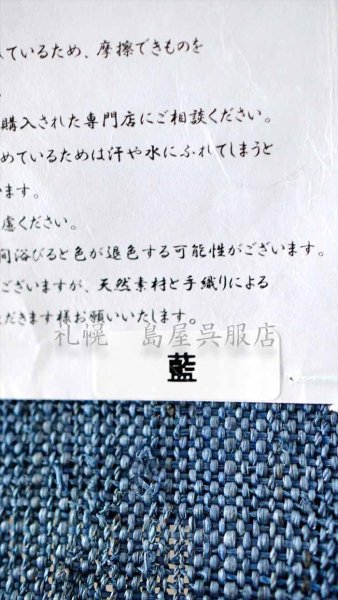 ているため、摩擦できものを
購入された専門店にご相談ください。
めているためは汗や水にふれてしまうと
います。
慮ください。
間浴びると色が退色する可能性がございます。
ございますが、天然素材と手織りによる
ただきます様お願いいたします。
札幌 島屋呉服店
藍